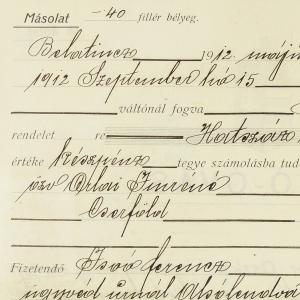 Másolat -40 fillér bélyeg.
Belatincz 1912. május
1912 Szeptember hó 15
váltónál fogva
rendelet re Hatszáz
értéke készpénz tegye számolásba tud
özv Orlai Imréné
Cserföld
Fizetendő Ivó ferencz
ügyvéd úrnál Alsólendva